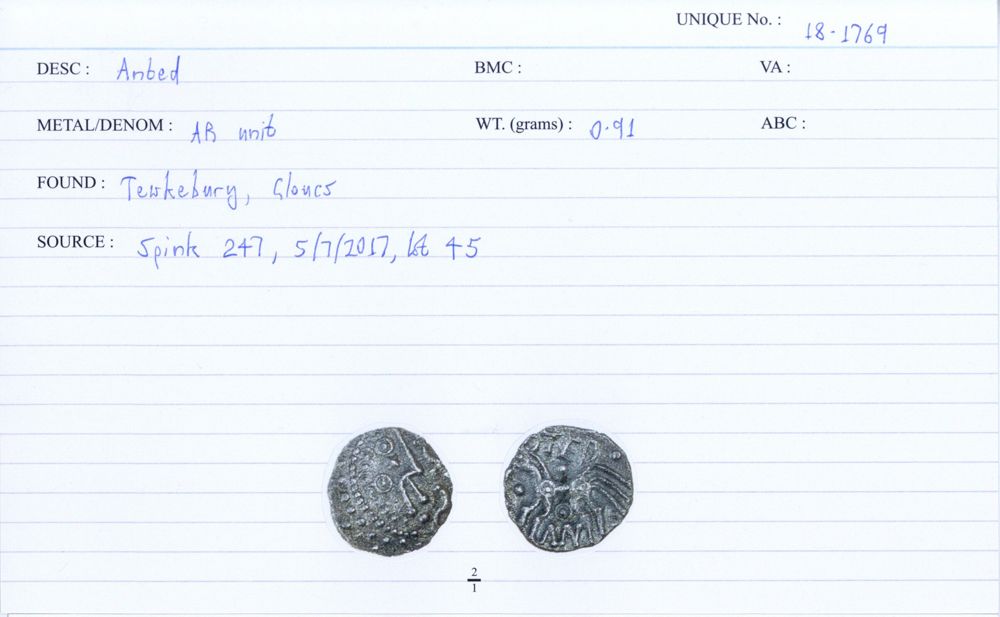 UNIQUE No. : 18-1769
DESC : Anbed BMC : VA :
METAL/DENOM : AR unit WT. (grams) : 0.91 ABC :
FOUND : Tewkebury, Gloucs
SOURCE : Spink 247, 5/7/2017, lot 45
2
1